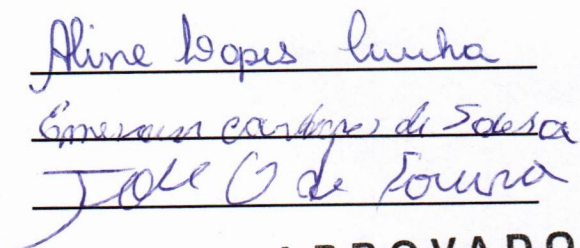 Aline Lopes Cunha
Emerson Cardoso de Sousa
José O de Souza
APROVADO